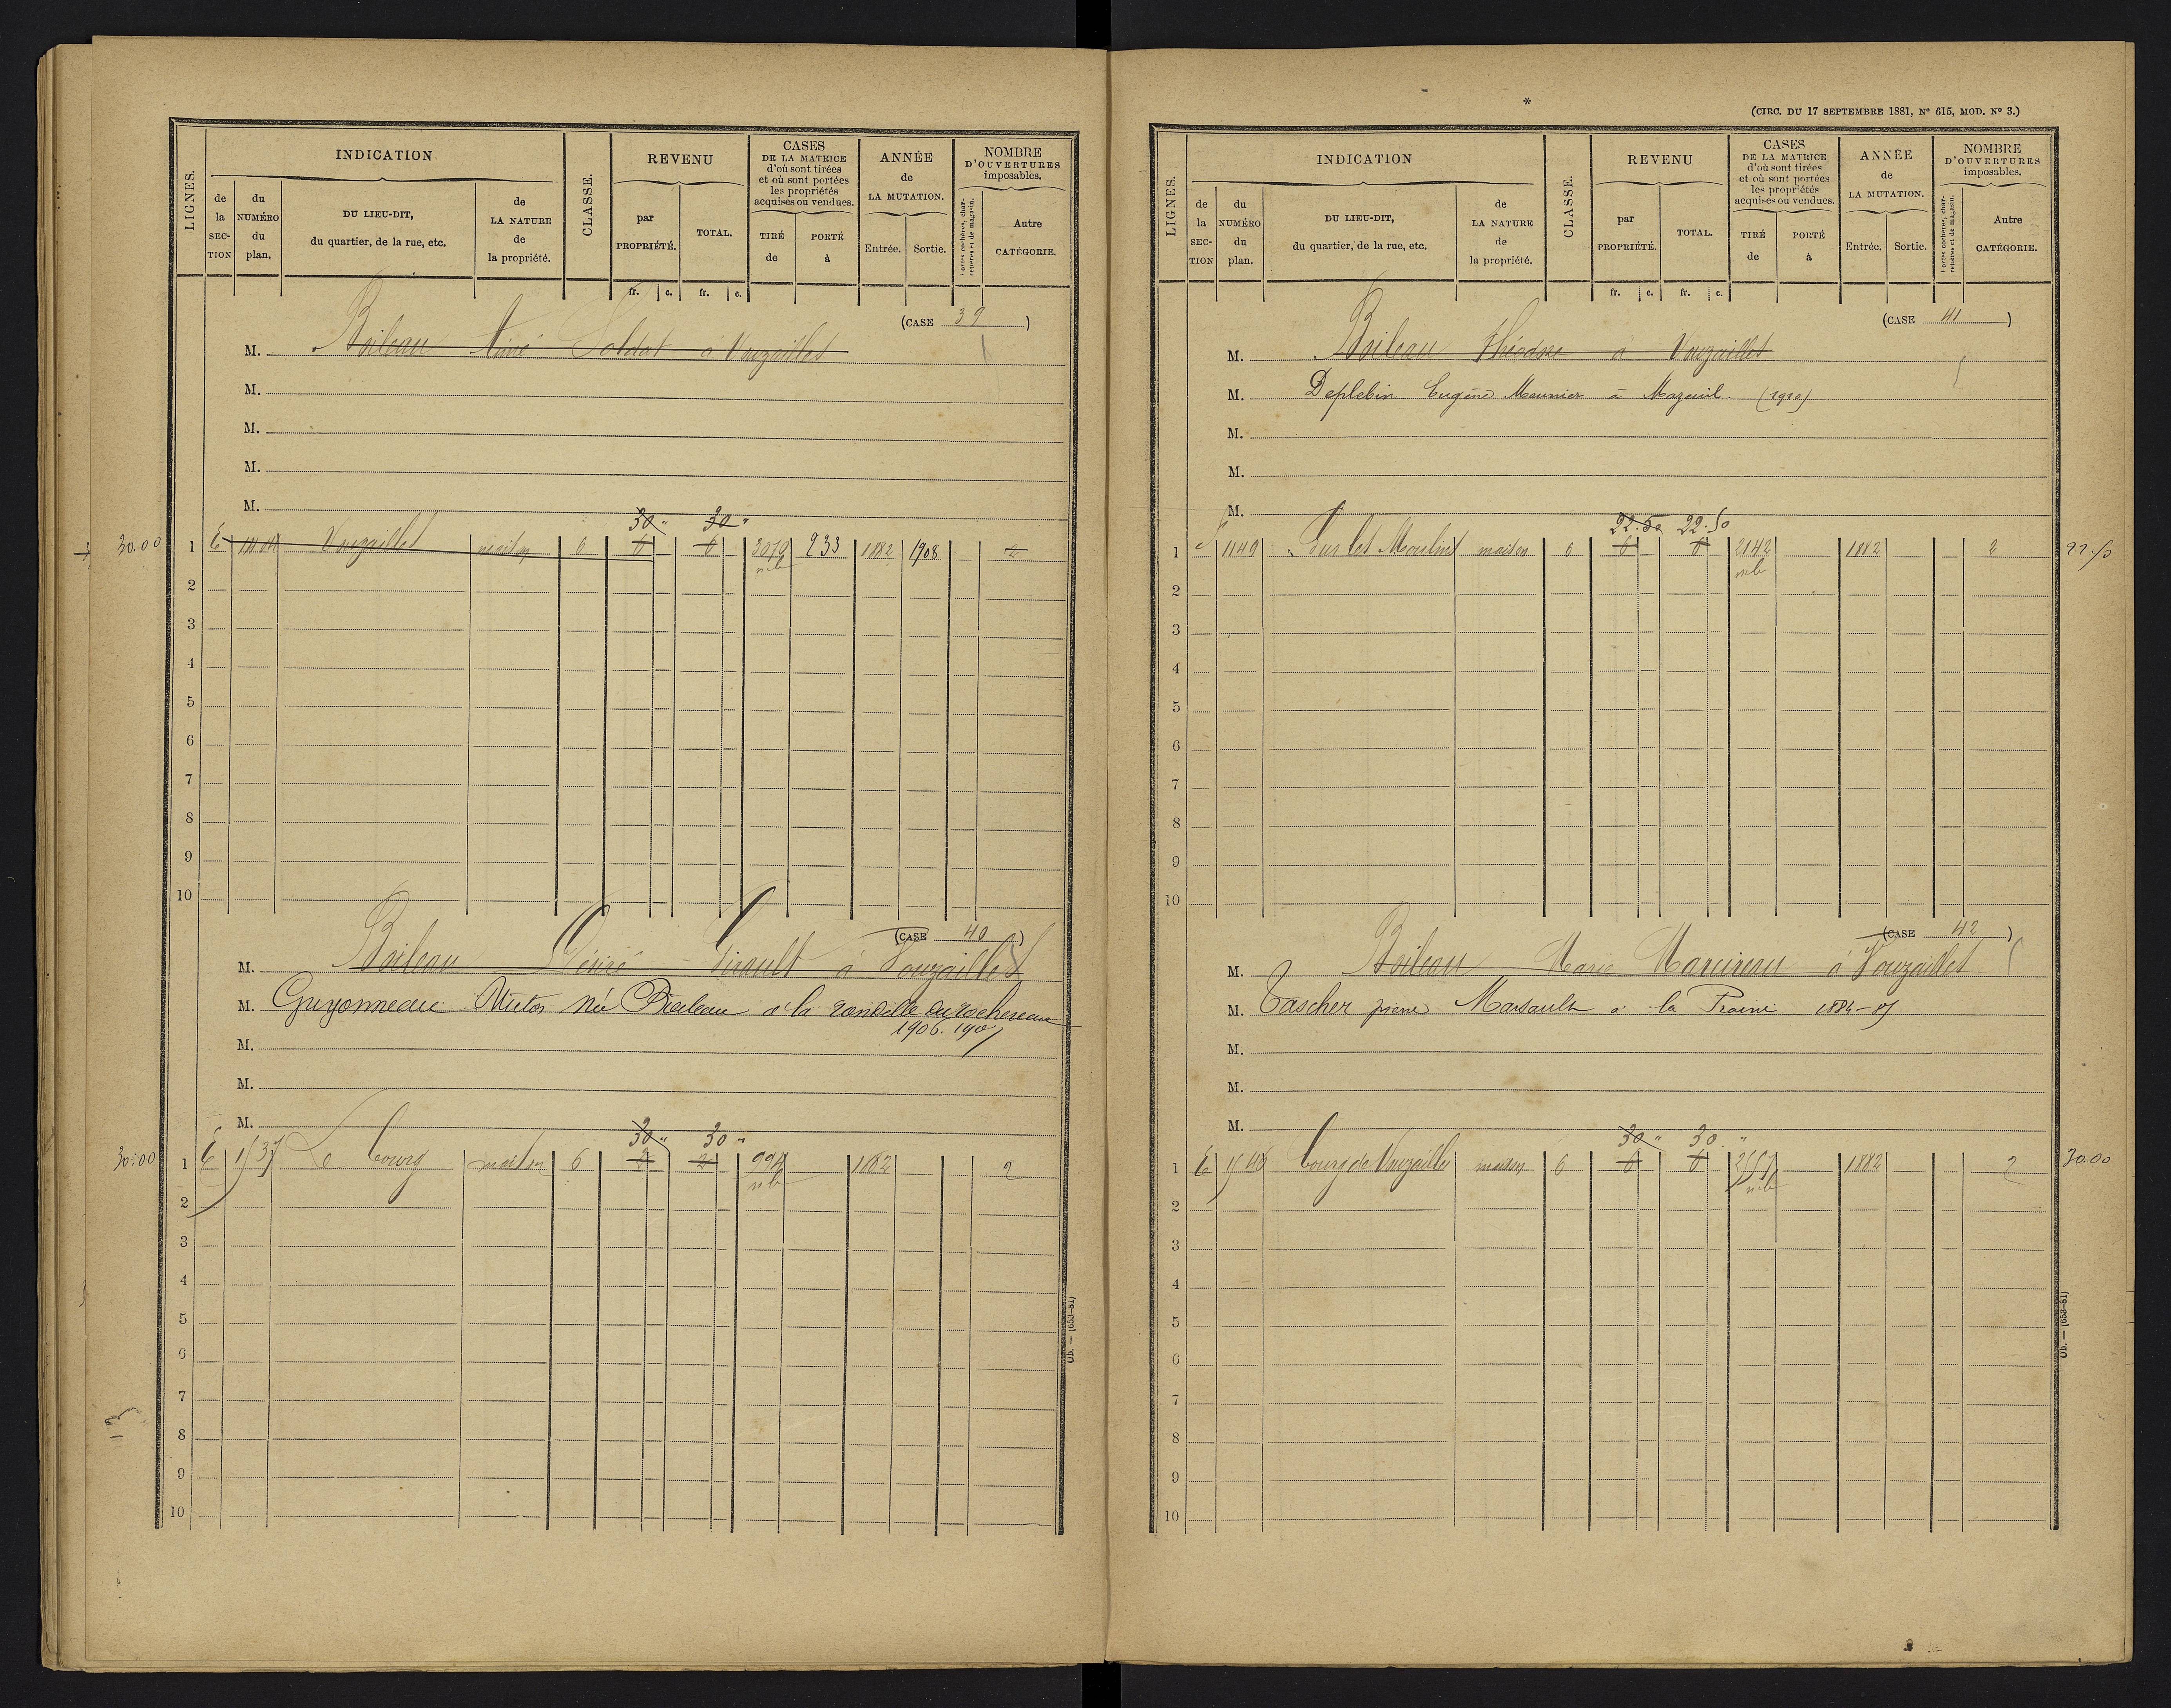 LIGNES.
INDICATION
de la SECTION
du NUMÉRO du plan.
DU LIEU-DIT, du quartier, de la rue, etc.
de LA NATURE de la propriété.
CLASSE.
REVENU
par PROPRIÉTÉ.
TOTAL.
CASES DE LA MATRICE d'où sont tirées et où sont portées les propriétés acquises ou vendues.
TIRÉ de
PORTÉ à
ANNÉE de LA MUTATION.
Entrée.
Sortie.
NOMBRE D'OUVERTURES imposables.
Portes cochères, charretières et de magasin.
Autre CATÉGORIE.
fr. c. fr. c.
(CASE 39)
M. Boileau Aimé Soldat à Vouzailles
M.
M.
M.
M.
30 " 30 "
30.00 1 E Vouzailles maison 6 6 6 3079 233 1882 1908 2
2
3
4
5
6
7
8
9
10
(CASE 40)
M. Boileau Désiré Girault à Vouzailles
M. Guyonneau Victor née Boileau à la du Rochereau
1906. 1907
M.
M.
M.
30 " 30 "
30.00 1 E 1537 Le bourg maison 6 994 1882 2
2
3
4
5
6
7
8
9
10
Ob. — (653-81)
*
(CIRC. DU 17 SEPTEMBRE 1881, N° 615, MOD. N° 3.)
LIGNES.
INDICATION
de la SECTION
du NUMÉRO du plan.
DU LIEU-DIT, du quartier, de la rue, etc.
de LA NATURE de la propriété.
CLASSE.
REVENU
par PROPRIÉTÉ.
TOTAL.
CASES DE LA MATRICE d'où sont tirées et où sont portées les propriétés acquises ou vendues.
TIRÉ de
PORTÉ à
ANNÉE de LA MUTATION.
Entrée.
Sortie.
NOMBRE D'OUVERTURES imposables.
Portes cochères, charretières et de magasin.
Autre CATÉGORIE.
fr. c. fr. c.
(CASE 41)
M. Boileau Théodore à Vouzailles
M. Deplebin Eugène Meunier à Mazeuil. (1910)
M.
M.
M.
22.50 22.50
1 1149 Sur les Moulins maison 6 6 6 2142 1882 2 22.50
2
3
4
5
6
7
8
9
10
(CASE 42)
M. Boileau Marie Marcireau à Vouzailles
M. Tascher pierre Marsault à la 1884-85
M.
M.
M.
30 " 30 "
1 E bourg de Vouzailles maison 6 6 6 1882 2 30.00
2
3
4
5
6
7
8
9
10
Ob. — (653-81)